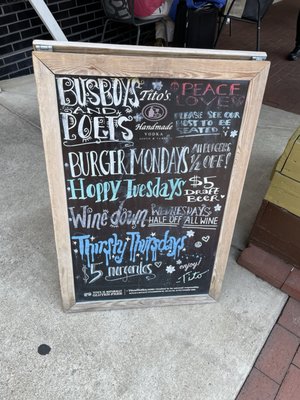 BUSBOYS
AND
POETS
Tito's
Handmade
VODKA
PEACE
LOVE
PLEASE SEE OUR
HOST TO BE
SEATED
BURGER MONDAYS
All BURGERS
1/2 OFF!
Hoppy Tuesdays
$5
Draft
BEER
Wine down WEDNESDAYS
HALF OFF ALL WINE
Thirsty Thursdays
5 margaritas
enjoy!
Tito